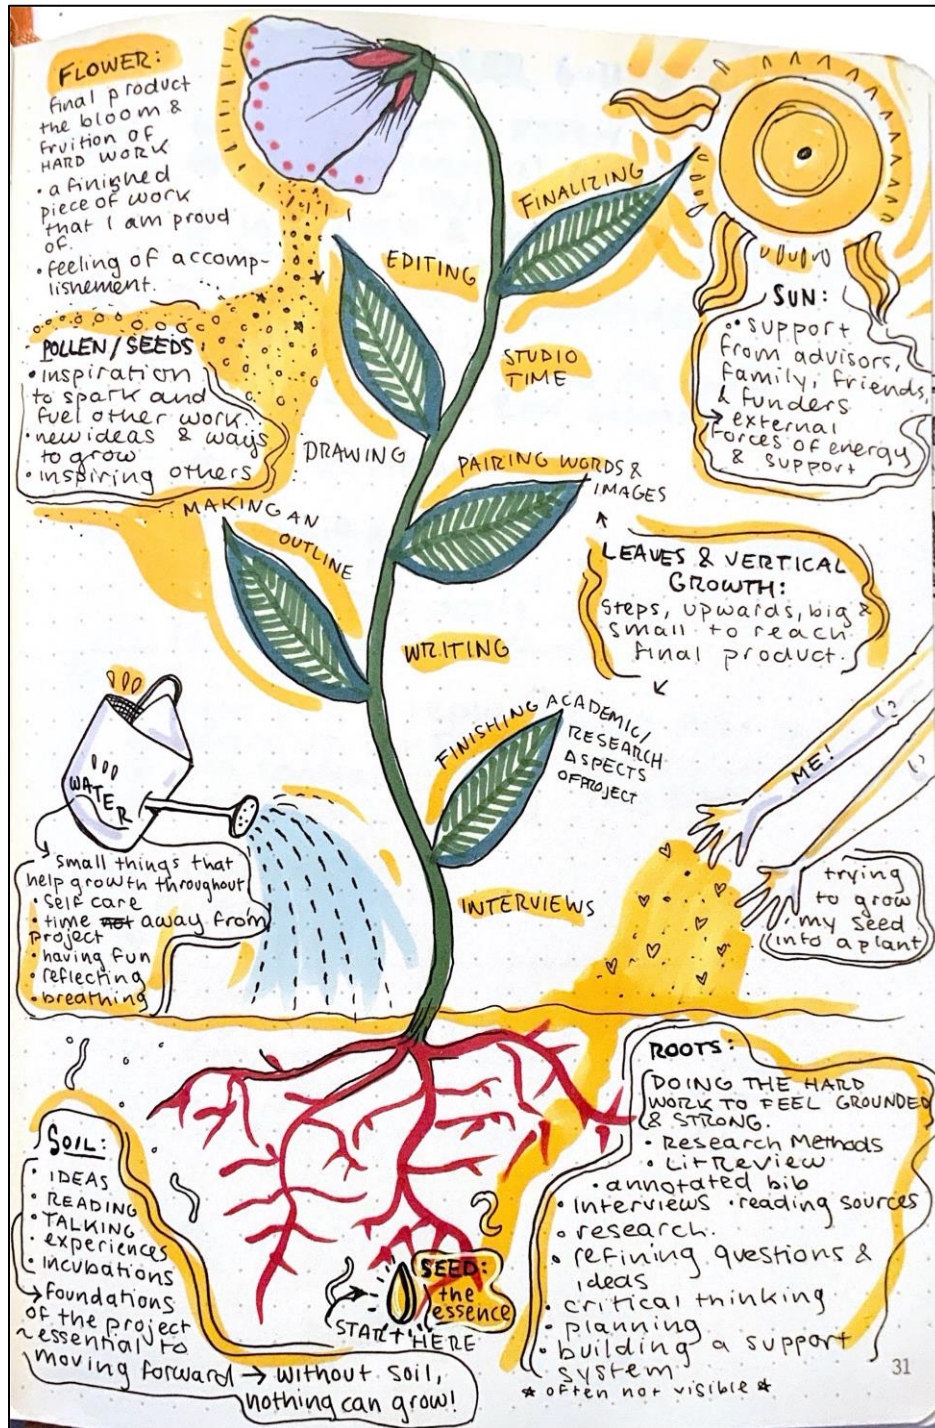 FLOWER:
final product
the bloom &
fruition of
HARD WORK
• a finished
piece of work
that I am proud
of.
• feeling of accomp-
lishement.
POLLEN/SEEDS:
• inspiration
to spark and
fuel other work.
• new ideas & ways
to grow
• inspiring others
FINALIZING
EDITING
STUDIO
TIME
DRAWING
PAIRING WORDS &
IMAGES
MAKING AN
OUTLINE
WRITING
FINISHING ACADEMIC/
RESEARCH
ASPECTS
OF PROJECT
INTERVIEWS
SUN:
• support
from advisors,
family, friends,
& funders
→ external
forces of energy
& support
LEAVES & VERTICAL
GROWTH:
Steps, upwards, big &
small to reach
final product.
WATER
small things that
help growth throughout
• Self care
• time not away from
project
• having fun
• reflecting
• breathing
ME!
trying
to grow
my seed
into a plant
SOIL:
• IDEAS
• READING
• TALKING
• experiences
• incubations
→ foundations
of the project
~ essential to
moving forward → without soil,
nothing can grow!
SEED:
the
essence
START HERE
ROOTS:
DOING THE HARD
WORK TO FEEL GROUNDED
& STRONG.
• Research Methods
• Lit Review
• annotated bib
• Interviews • reading sources
• research.
• refining questions &
ideas
• critical thinking
• planning
• building a support
system
* often not visible *
31